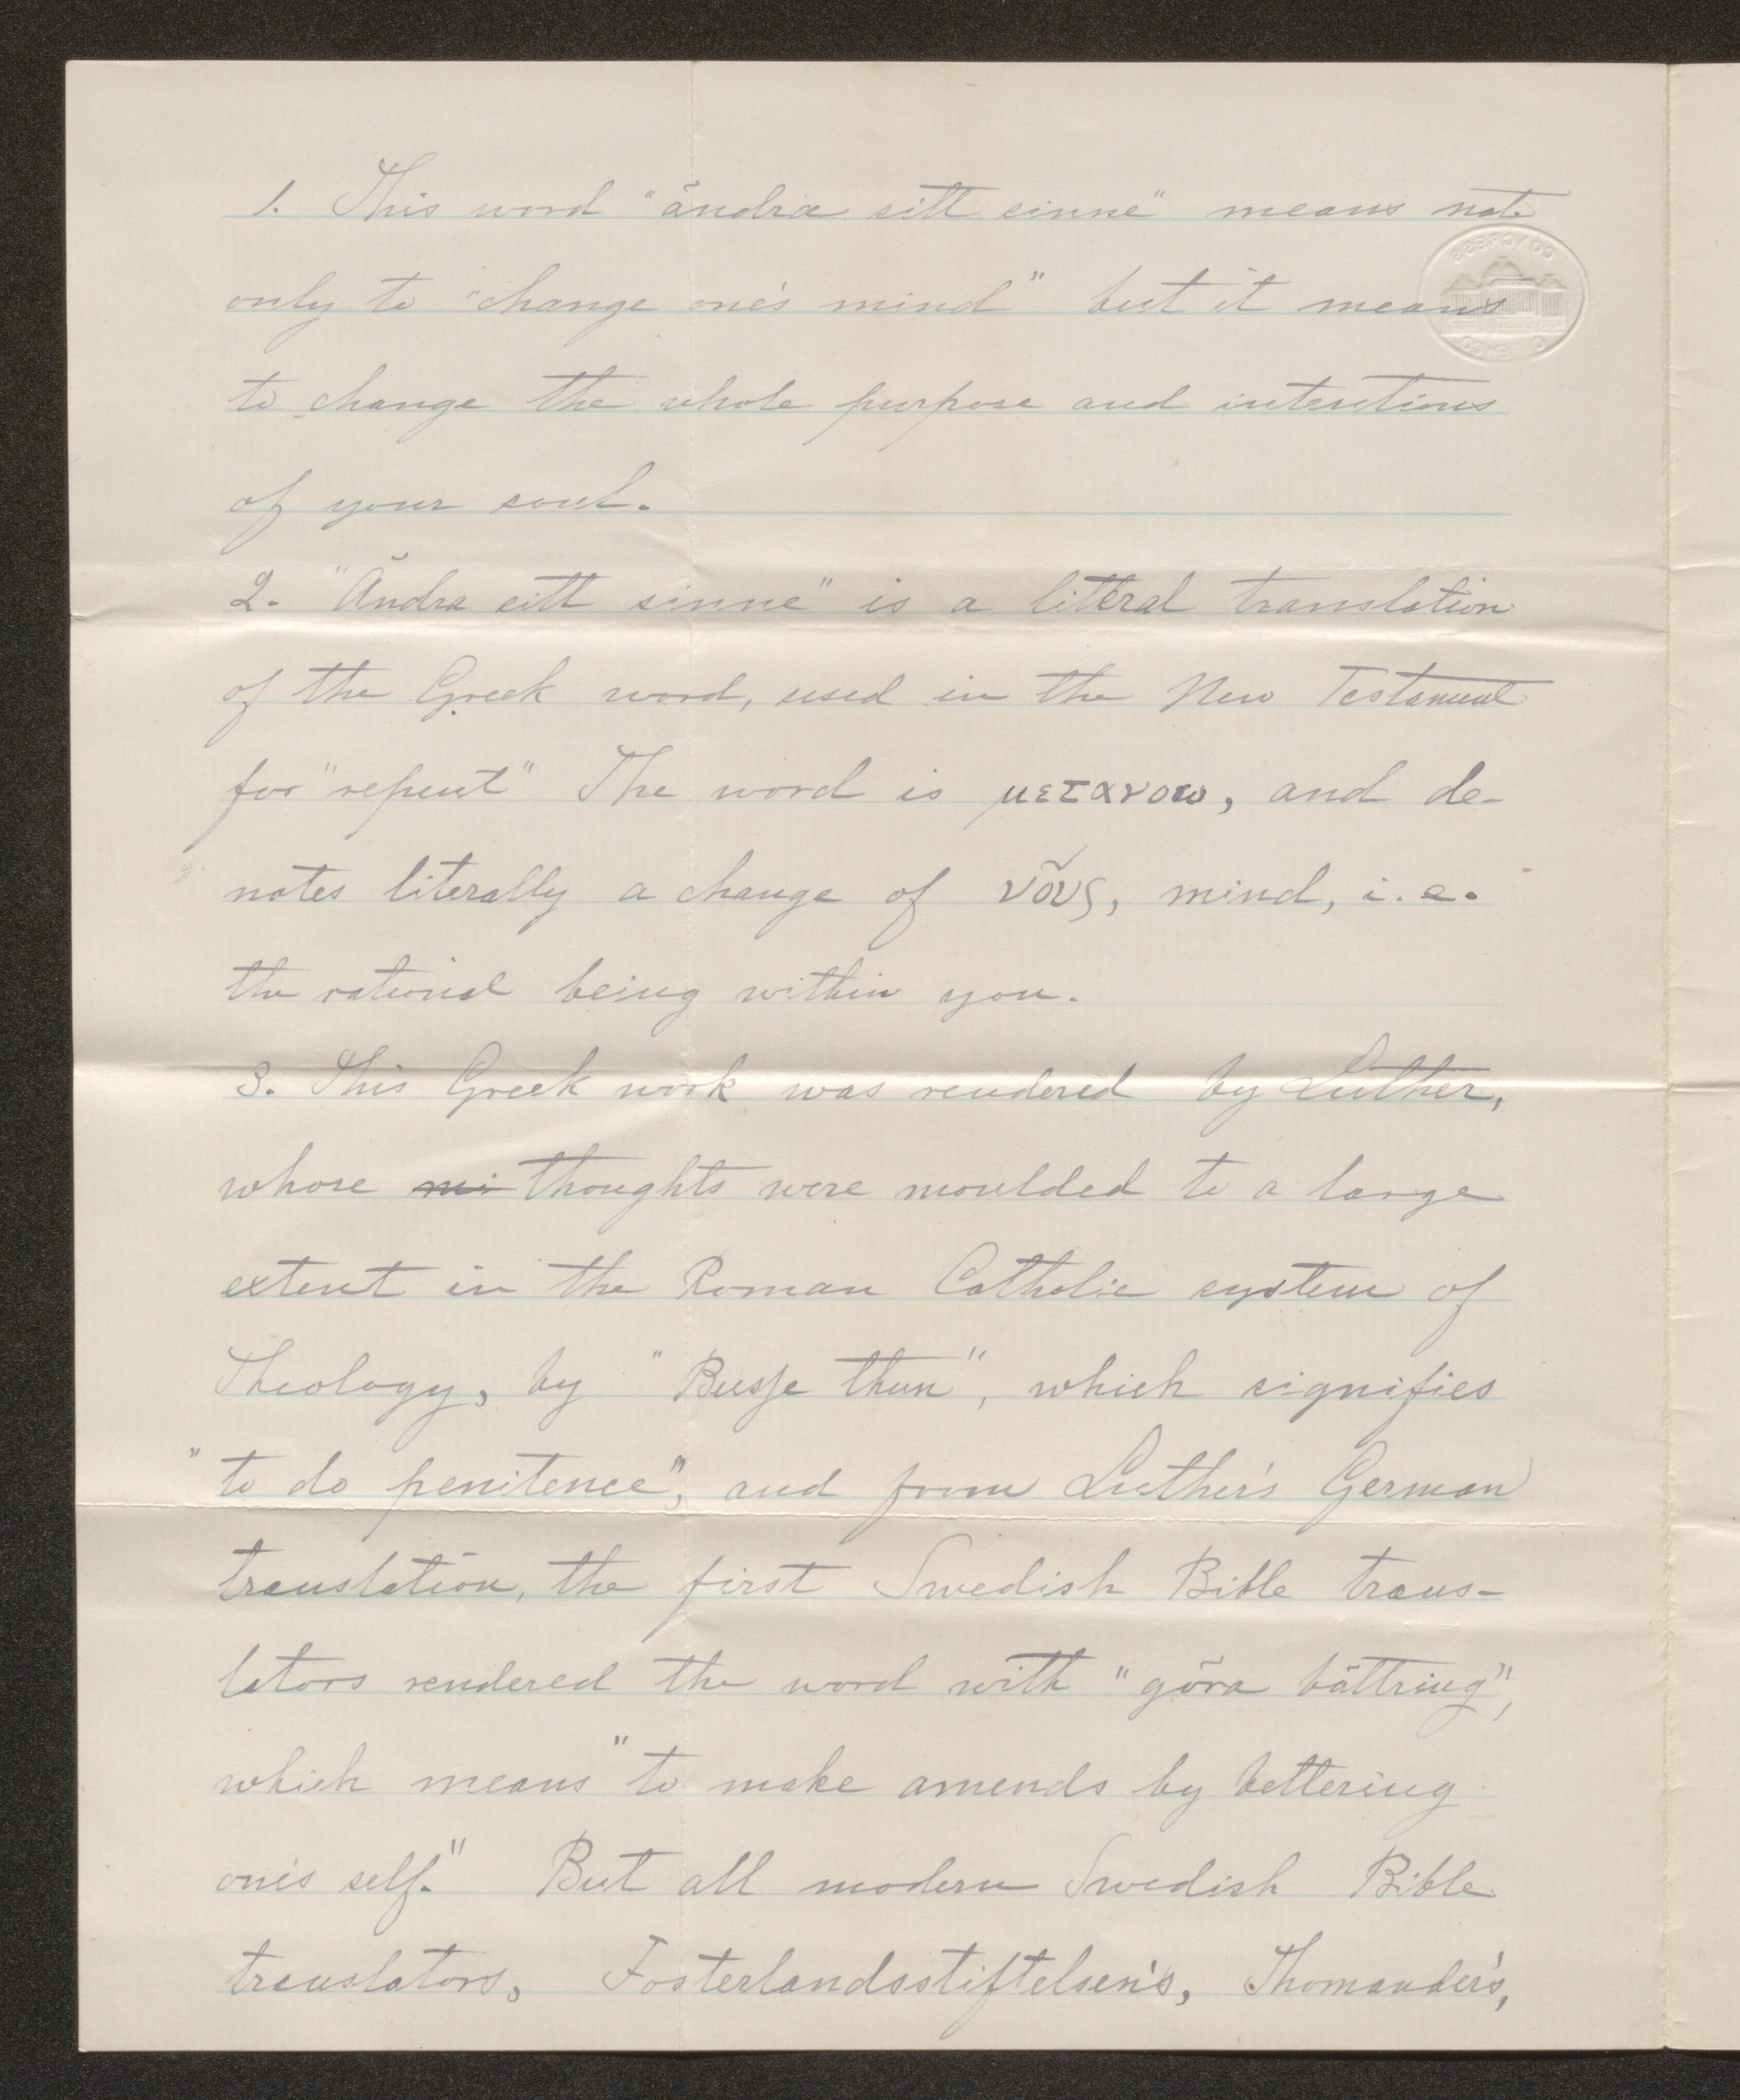 1. This word "ändra sitt sinne" means not
only to "change one's mind" but it means
to change the whole purpose and intentions
of your soul.
2. "Ändra sitt sinne" is a litteral translation
of the Greek word, used in the New Testament
for "repent" The word is μετανοω, and de-
notes literally a change of νõυς, mind, i.e.
the rational being within you.
3. This Greek work was rendered by Luther,
whose mi thoughts were moulded to a large
extent in the Roman Catholic system of
Theology, by "Busse thun", which signifies
"to do penitence", and from Luther's German
translation, the first Swedish Bible trans-
lators rendered the word with "göra bättring",
which means "to make amends by bettering
one's self." But all modern Swedish Bible
translators, Fosterlandsstiftelsen's, Thomander's,
CONGRESS